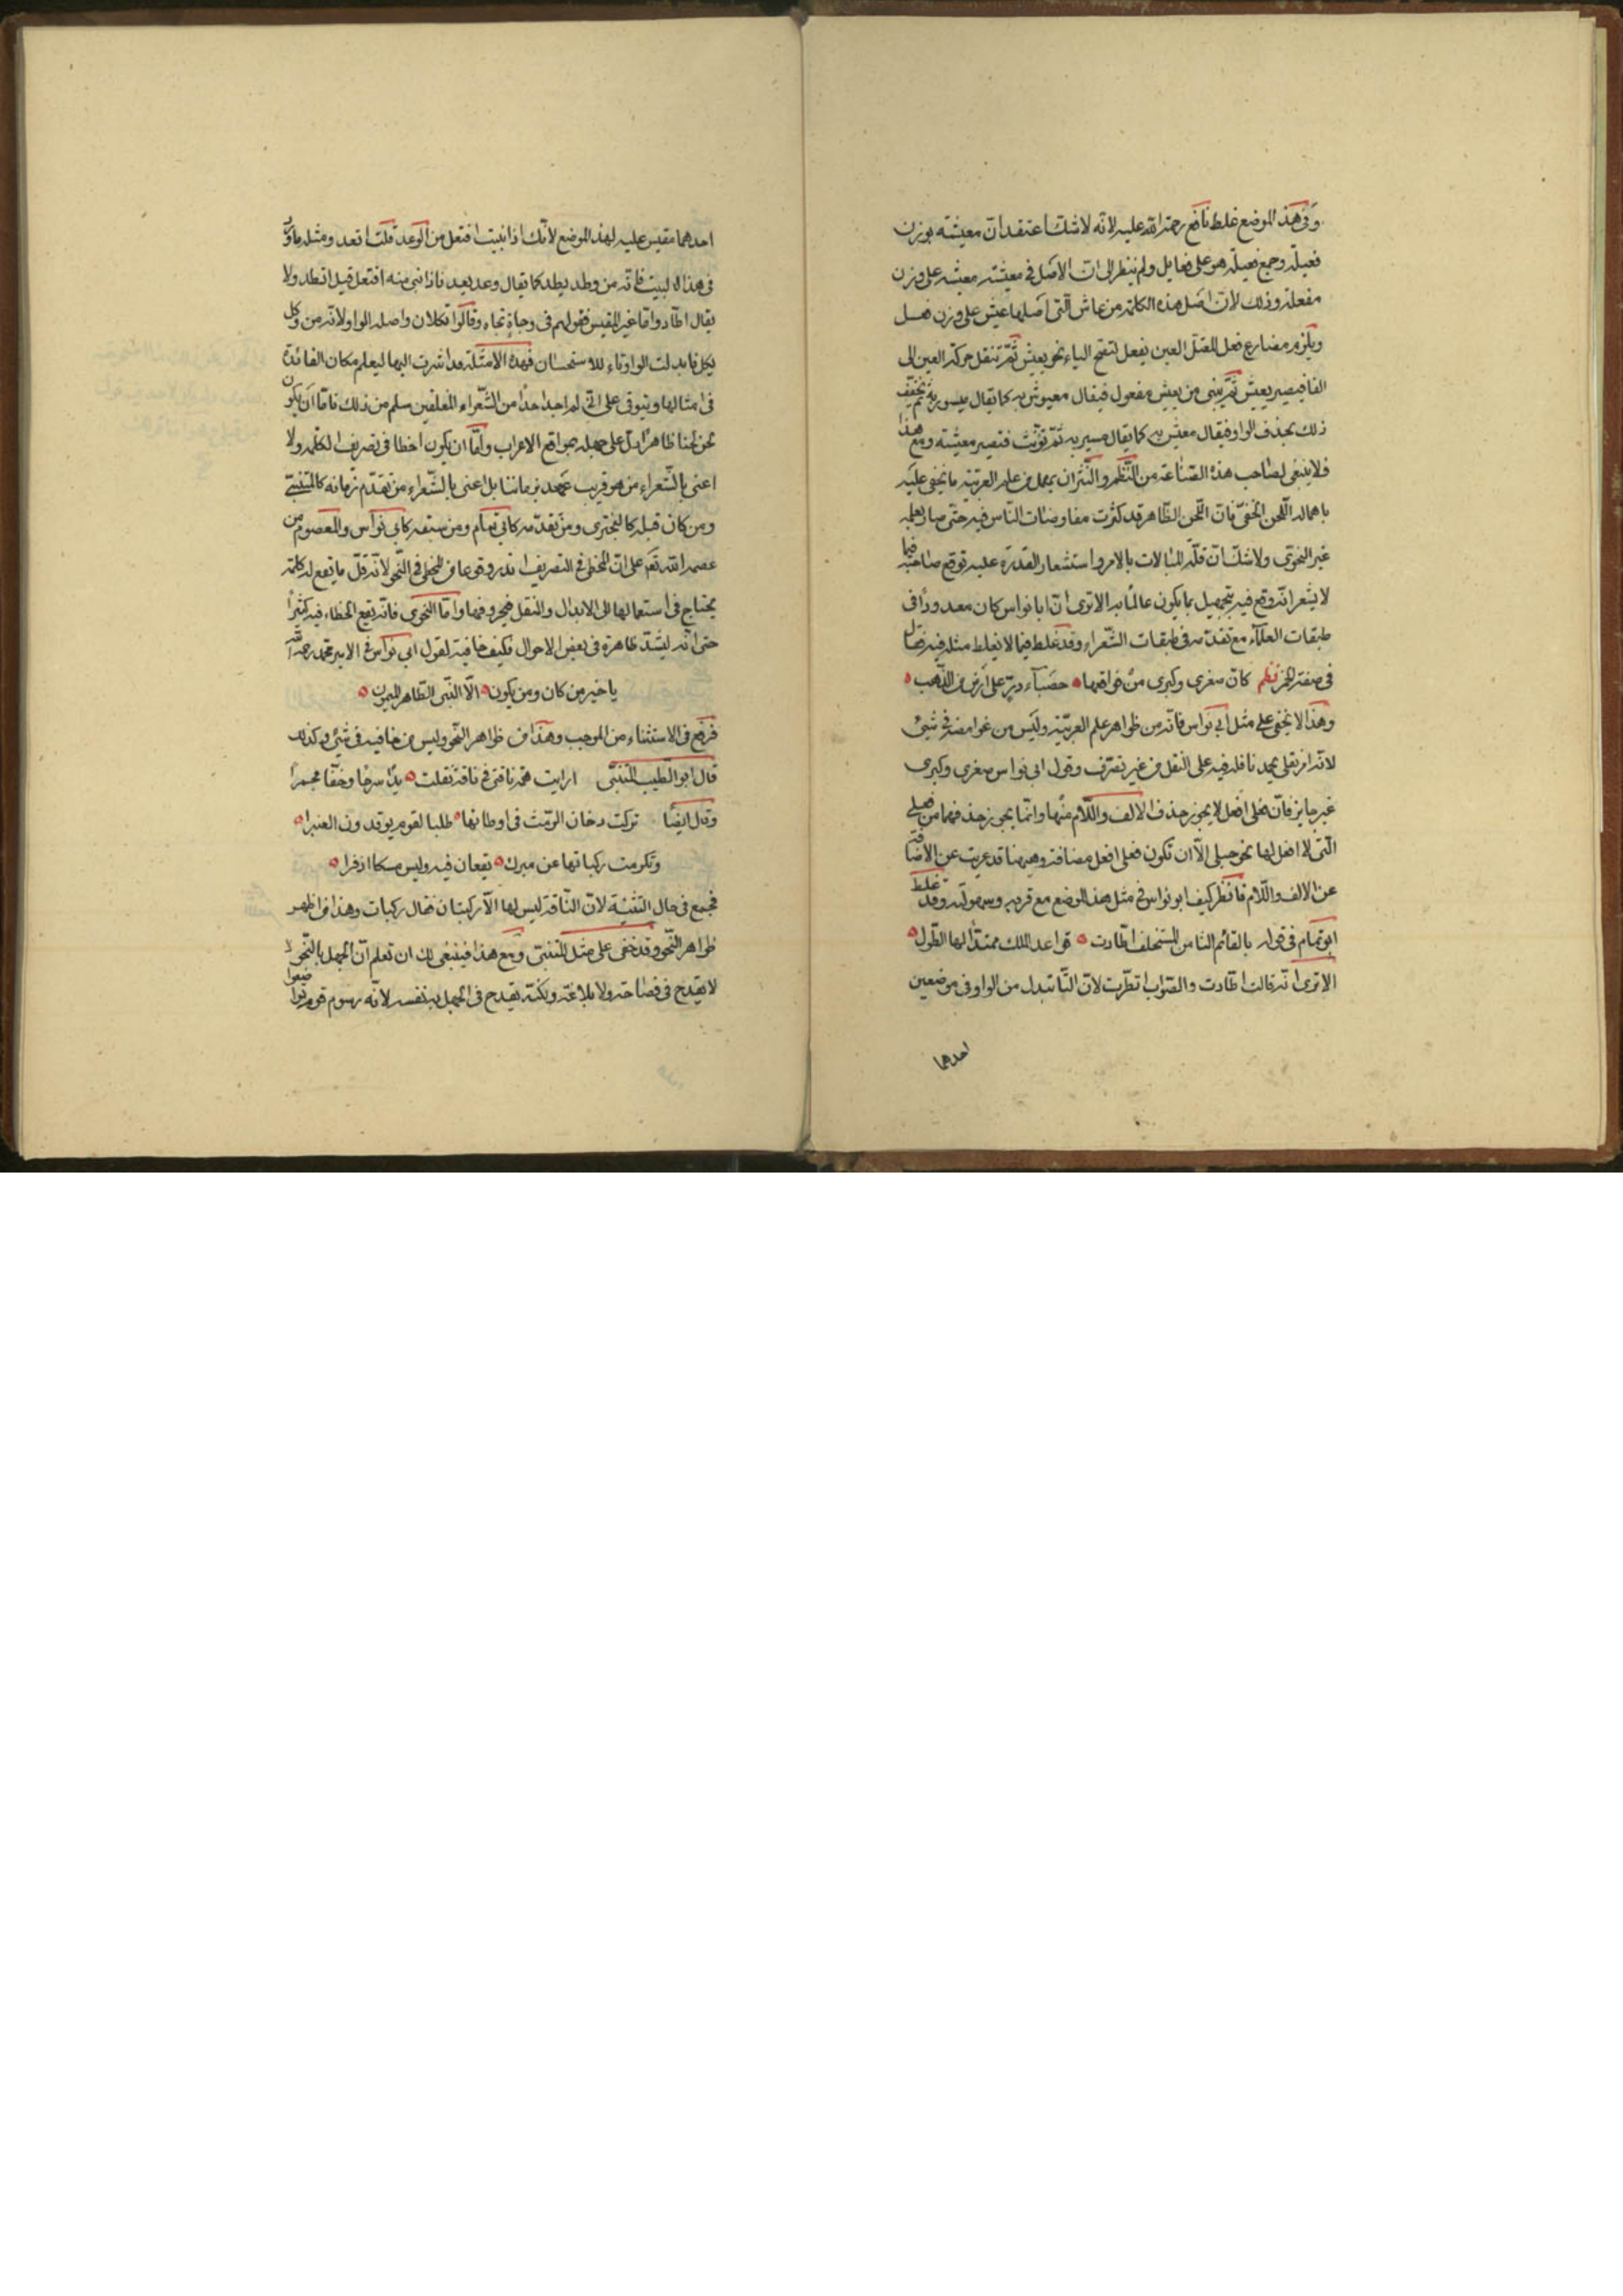 وفى هذا الموضع غلط نافع رحمة الله عليه لانه لا شك اعتقد ان معيشة بوزن
فعيلة وجمع فعيلة هو على فعايل ولم ينظر الى ان الاصل فى معيشة معيشة على وزن
مفعلة وذلك لان اصل هذه الكلمة من عاش التى اصلها عيش على وزن فعل
ويلزم مضارع فعل المعتل العين يفعل لتصح الياء نحو يعيش ثم تنقل حركة العين الى
الفا فيصير يعيش ثم يبنى من يعيش مفعول فيقال معيوش به كما يقال مسيور به ثم يخفف
ذلك بحذف الواو فيقال معيش به كما يقال مسير به ثم تؤنث فتصير معيشة ومع هذا
فلا ينبغى لصاحب هذه الصناعة من النظم والنثر ان يهمل من علم العربية ما يخفى عليه
باهماله اللحن الخفى فان اللحن الظاهر قد كثرت مفاوضات الناس فيه حتى صار يعلمه
غير النحوى ولا شك ان قلة المبالات بالامر واستشعار القدرة عليه توقع صاحبه فيما
لا يشعر انه وقع فيه بتجهيل بما يكون عالما به الا ترى ان ابا نواس كان معدودا فى
طبقات العلماء مع تقدمه فى طبقات الشعراء وقد غلط فيما لا يغلط مثله فيه فقال
فى صفة الخمر نظم كان صغرى وكبرى من فواقعها حصباء در على ارض من الذهب
وهذا لا يخفى على مثل ابى نواس فانه من ظواهر علم العربية وليس من غوامضه فى شئ
لانه امر نقلى يحمل ناقله فيه على النقل من غير تصرف وقول ابى نواس صغرى وكبرى
غير جايز فان فعلى افعل لا يجوز حذف الالف واللام منها وانما يجوز حذفهما من فعلى
التى لا افعل لها نحو حبلى الا ان تكون فعلى افعل مضافة وههنا قد عريت عن الاضافة
عن الالف واللام فانظر كيف ابو نواس فى مثل هذا الموضع مع قربه وسهولته وقد غلط
ابو تمام فى قوله بالقائم الثامن المستخلف اطّادت قواعد الملك ممتدا لها الطول
الا ترى انه قالت اطّادت والصواب اتطدت لان التا تبدل من الواو فى موضعين
احدهما
احدهما مقيس عليه لهذا الموضع لانك اذا بنيت افتعل من الوعد قلت اتعد ومثله ما ورد
فى هذا البيت فانه من وطد يطد كما يقال وعد يعد فاذا بنى منه افتعل قيل اتطد ولا
يقال اطّاد واما غير المقيس فقولهم فى وجاه تجاه وقالوا تكلان واصله الواو لانه من وكل
يكل فابدلت الواو تاء للاستحسان فهذه الامثلة قد اشرت اليها ليعلم مكان الفائدة
فى امثالها ويتوقى على انى لم اجد احدا من الشعراء المفلقين سلم من ذلك فاما ان يكون
لحن لحنا ظاهرا دل على جهله بمواقع الاعراب واما ان يكون اخطا فى تصريف الكلمة ولا
اعنى بالشعراء من هو قريب عهد بزماننا بل اعنى بالشعراء من تقدم زمانه كالمتنبى
ومن كان قبله كالبحترى ومن تقدمه كابى تمام ومن سبقه كابى نواس والمعصوم من
عصمه الله تعم على ان المخطى فى التصريف اندر وقوعا من المخطى فى النحو لانه قل ما يقع له كلمة
يحتاج فى استعمالها الى الابدال والنقل فى حروفها واما النحوى فانه يقع الخطاء فيه كثيرا
حتى انه ليشذ ظاهره فى بعض الاحوال فكيف خافيه لقول ابى نواس فى الامير محمد رحمه الله
يا خير من كان ومن يكون الا النبى الطاهر الميمون
فرفع فى الاستثناء من الموجب وهذا من ظواهر النحو وليس من خافيه فى شئ وكذلك
قال ابو الطيب المتنبى ارايت همة ناقتى فى ناقة نقلت يدا سرحا وخفا مجمرا
وقال ايضا تركت دخان الرمث فى اوطانها طلبا لقوم يوقدون العنبرا
وتكرمت ركباتها عن مبرك تقعان فيه وليس مسكا اذفرا
فجمع فى حال التثنية لان الناقة ليس لها الا ركبتان فقال ركبات وهذا من اظهر
ظواهر النحو وقد خفى على مثل المتنبى ومع هذا فينبغى لك ان تعلم ان الجهل بالنحو لا
لا يقدح فى فصاحة ولا بلاغة ولكنه يقدح فى الجهل به نفسه لانه رسوم قوم تواضعوا